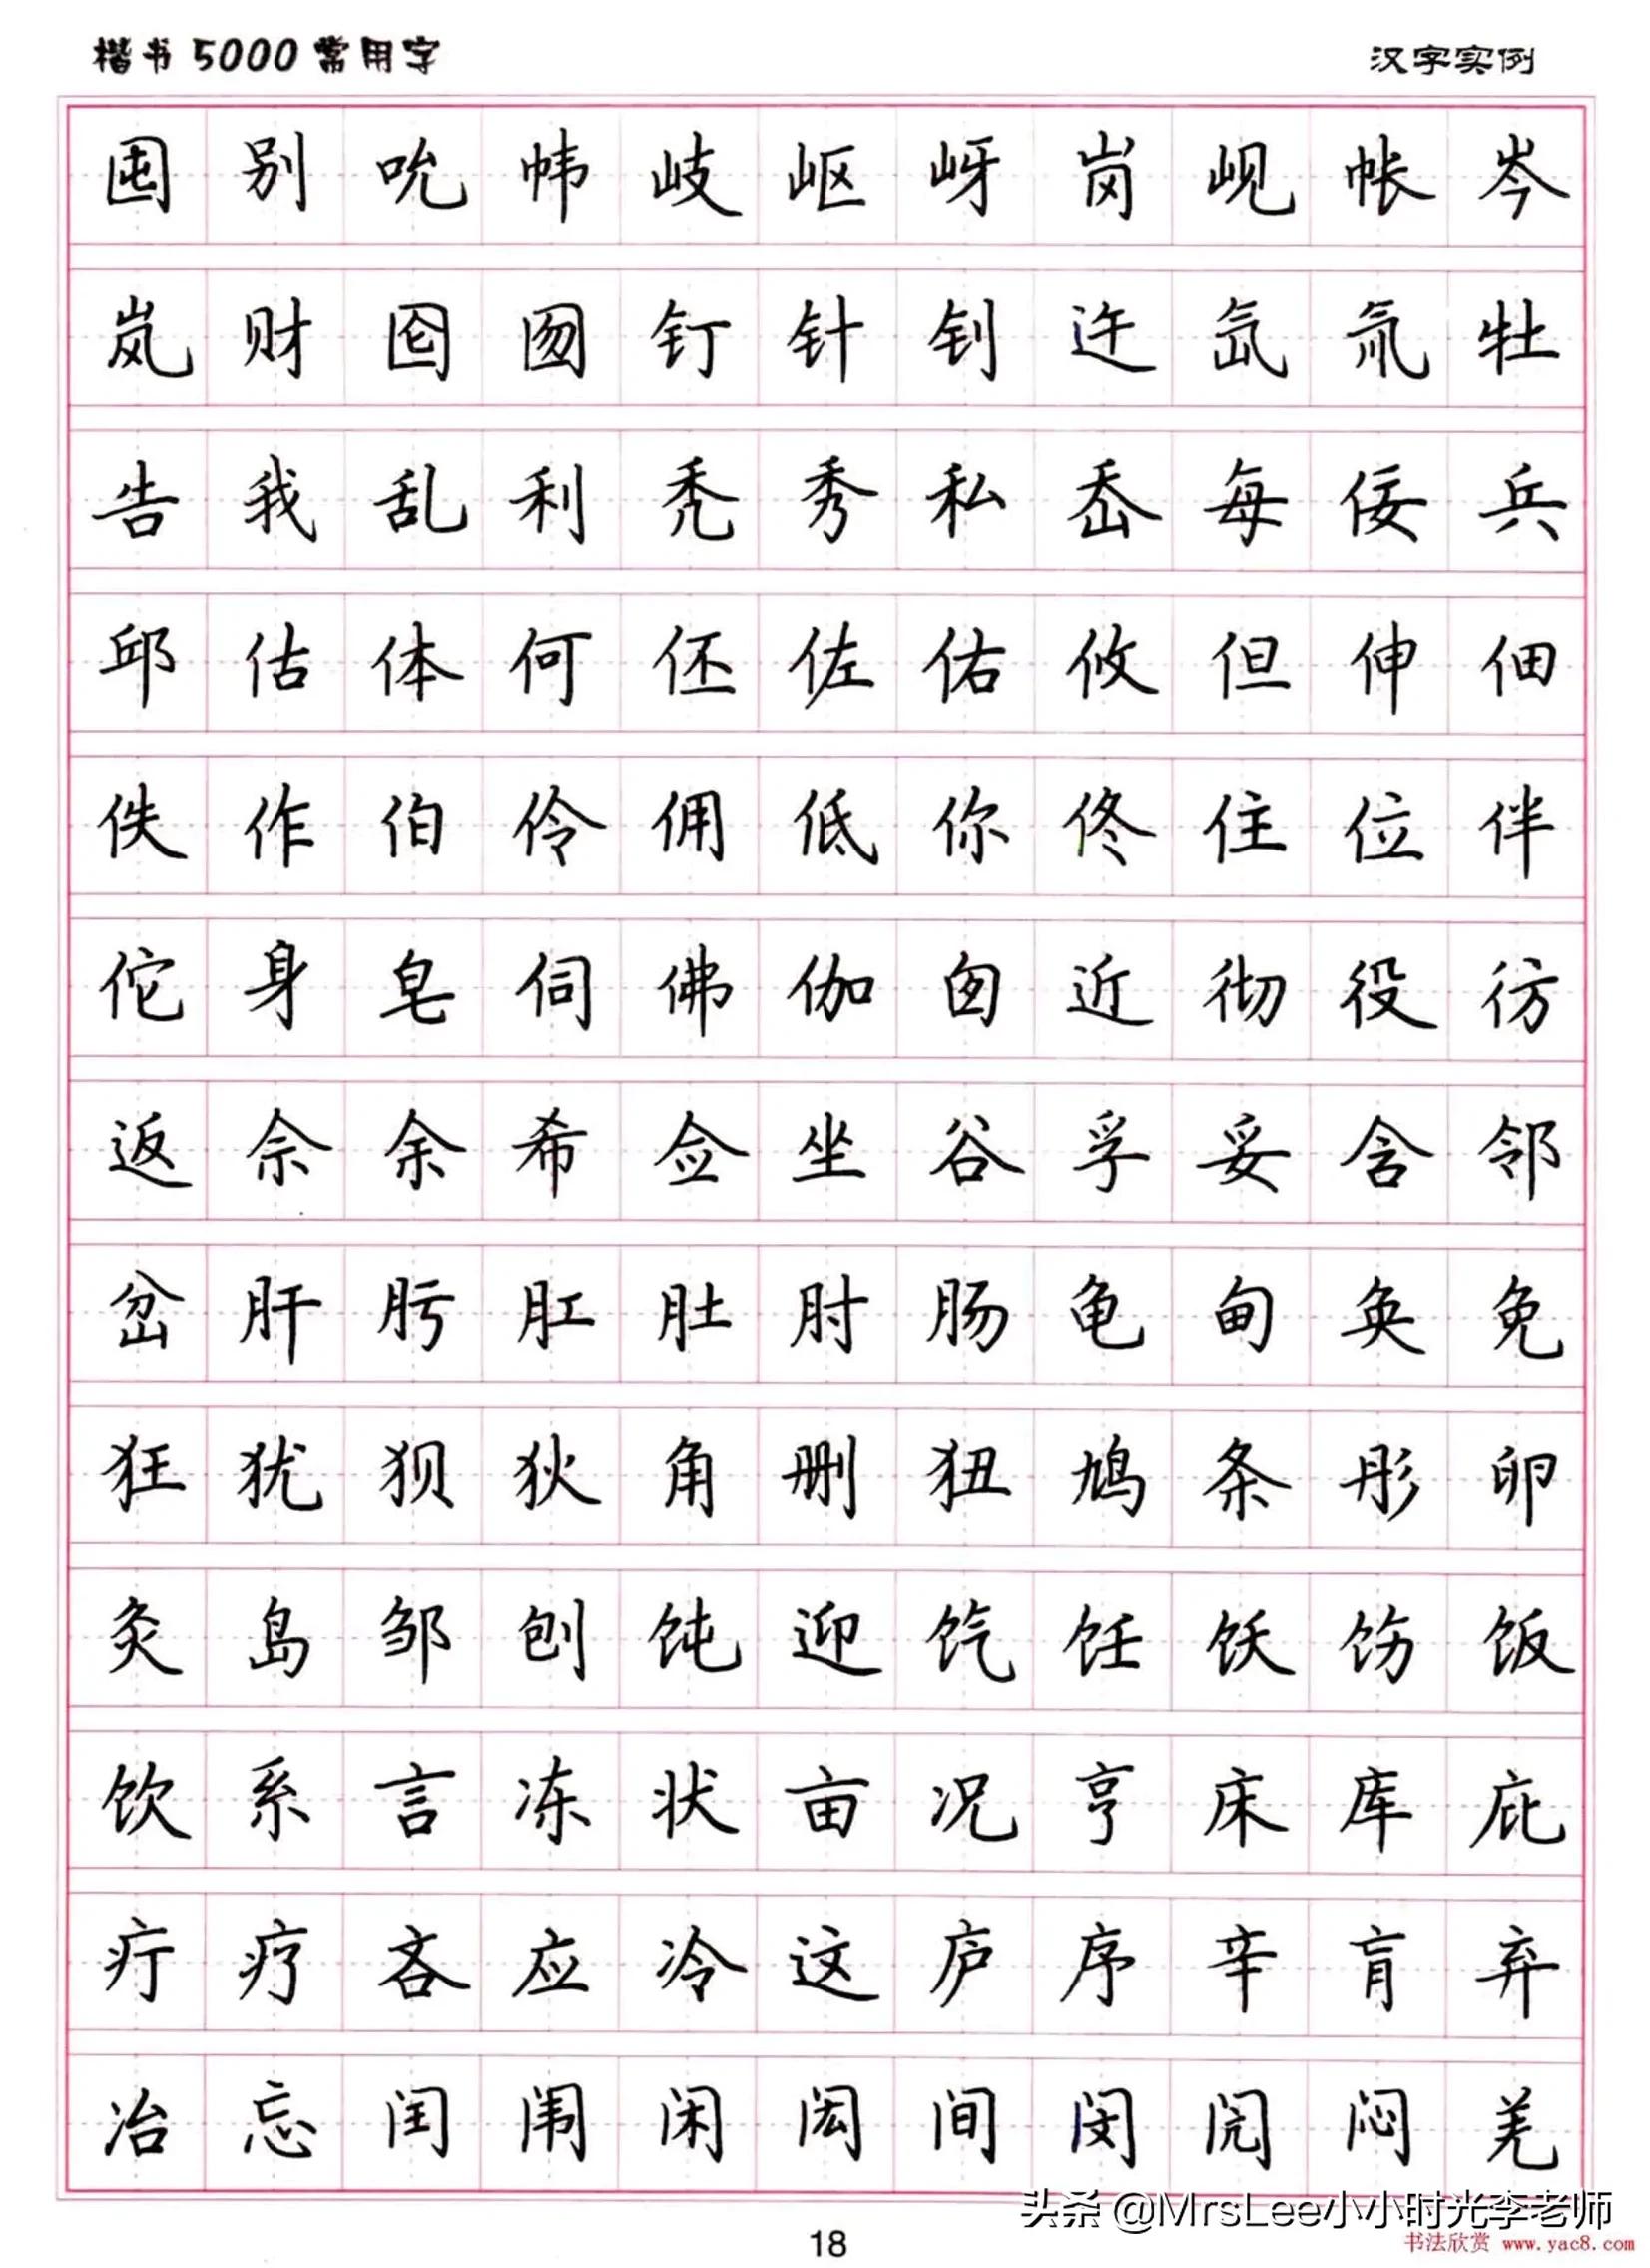 楷书5000常用字 汉字实例
囤 别 吮 帏 岐 岖 岈 岗 岘 帐 岑
岚 财 囵 囫 钉 针 钊 迕 氙 氚 牡
告 我 乱 利 秃 秀 私 岙 每 佞 兵
邱 估 体 何 伾 佐 佑 攸 但 伸 佃
佚 作 伯 伶 佣 低 你 佟 住 位 伴
佗 身 皂 伺 佛 伽 囱 近 彻 役 彷
返 佘 余 希 佥 坐 谷 孚 妥 含 邻
岔 肝 肟 肛 肚 肘 肠 龟 甸 奂 免
狂 犹 狈 狄 角 删 狃 鸠 条 彤 卵
灸 岛 邹 刨 饨 迎 饩 饪 饫 饬 饭
饮 系 言 冻 状 亩 况 亨 床 库 庇
疔 疗 吝 应 冷 这 庐 序 辛 肓 弃
冶 忘 闰 闱 闲 闳 间 闵 闶 闷 羌
头条 @MrsLee小小时光李老师
18
书法欣赏 www.yac8.com